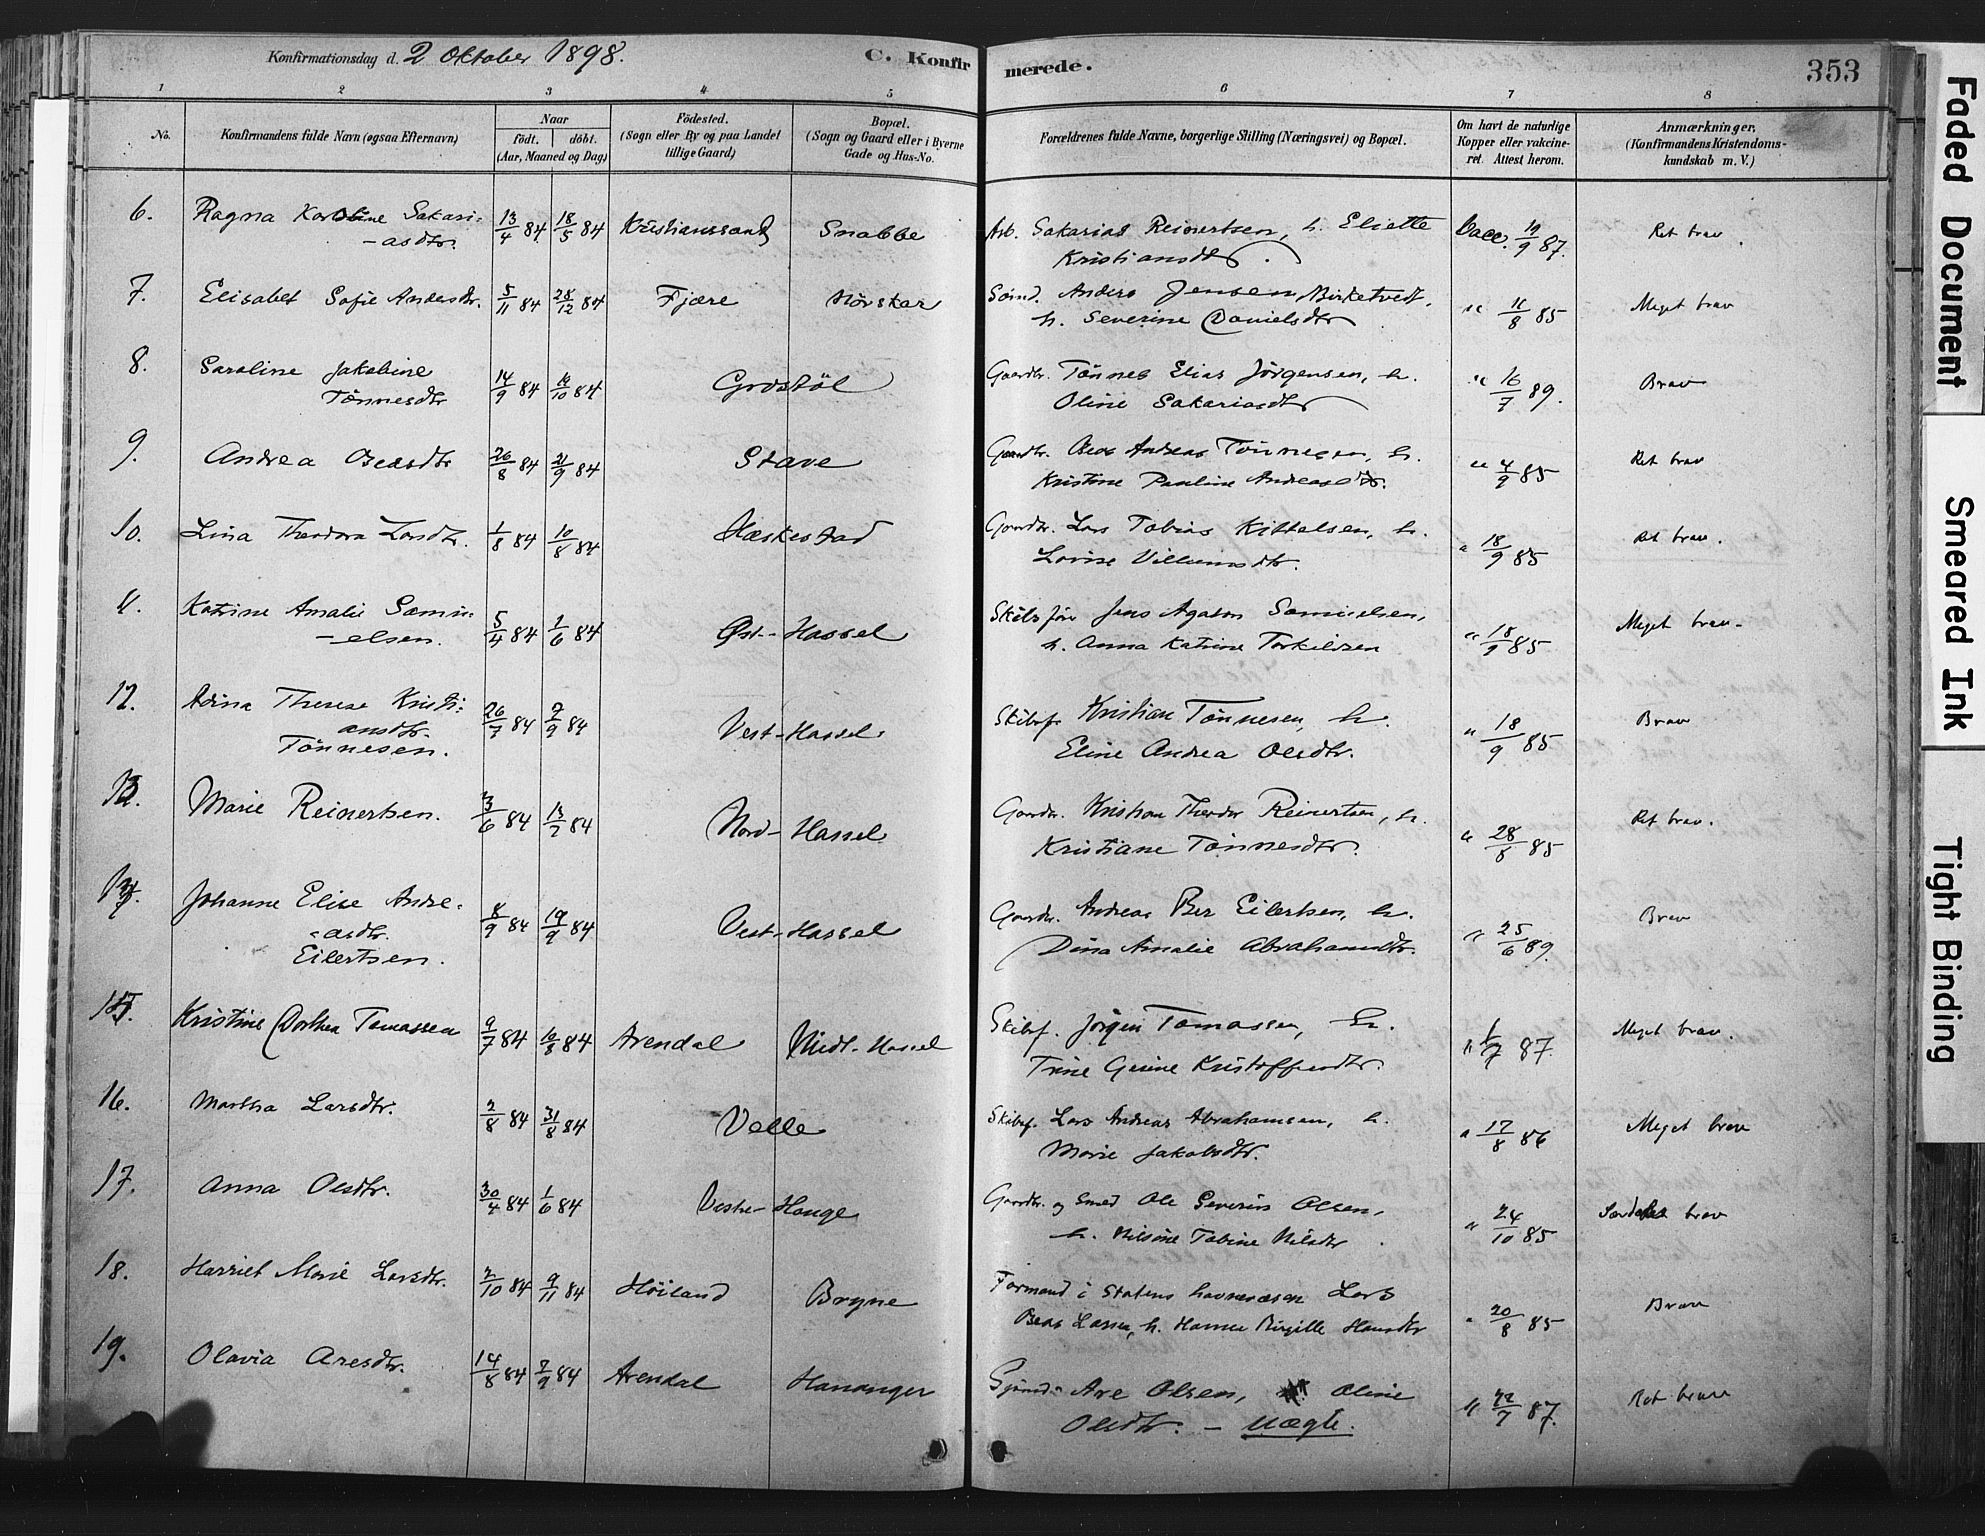 Konfirmationsdag d. 2 Oktober 1898.
C. Konfirmerede.
353
1 2 3 4 5 6 7 8
No.
Konfirmandens fulde Navn (ogsaa Efternavn)
Naar
født. døbt.
(Aar, Maaned og Dag)
Fødested.
(Sogn eller By og paa Landet
tillige Gaard)
Bopæl.
(Sogn og Gaard eller i Byerne
Gade og Hus-No.
Forældrenes fulde Navne, borgerlige Stilling (Næringsvei) og Bopæl.
Om havt de naturlige
Kopper eller vakcine-
ret. Attest herom.
Anmærkninger.
(Konfirmandens Kristendoms-
kundskab m. V.)
6. Ragna Karoline Sakari- 13/4 84 18/5 84 Kristianssand Snabbe Arb. Sakarias Reinertsen, h. Eliette Vacc. 19/9 87. Ret brav.
-asdtr. Kristiansdtr.
7. Elisabet Sofie Andersdtr. 5/11 84 28/12 84 Fjære Nørskar Sømd. Anders Jensen Birketvedt, " 11/8 85 Meget brav
h. Severine Danielsdtr
8. Saroline Jakobine 14/9 84 19/10 84 Grostøl Gaardbr. Tønnes Elias Jørgensen, h. " 16/7 89. Brav
Tønnesdtr Oline Sakariasdtr
9. Andrea Beasdtr 26/8 84 21/9 84 Stave Gaardbr. Beas Andreas Tønnesen, h. " 4/9 85 Ret brav
Kristine Pauline Andreasdtr.
10. Lina Theodora Larsdtr. 1/8 84 10/8 84 Hæskestad Gaardbr. Lars Tobias Kittelsen, h. " 18/9 85 Ret brav.
Lovise Villumsdtr.
11. Katrine Amalie Samu- 5/4 84 1/6 84 Øst-Hassel Skibsfører Jens Agaton Samuelsen, " 18/9 85 Meget brav.
-elsen. h. Anna Katrine Torkildsen
12. Adina Therese Kristi- 26/7 84 7/9 84 Vest-Hassel. Skibsf. Kristian Tønnesen, h. " 18/9 85 Brav
ansdtr. Eline Andrea Olsdtr.
Tønnesen.
13. Marie Reinertsen. 3/6 84 13/7 84 Nord-Hassel. Gaardbr. Kristian Theodor Reinertsen, h. " 28/8 85 Ret brav.
Kristiane Tønnesdtr.
14. Johanne Elise Andre- 8/9 84 19/9 84 Vest-Hassel Gaardbr. Andreas Ber Eilertsen, h. " 25/6 89. Brav
-asdtr. Dina Amalie Abrahamsdtr.
Eilertsen.
15. Kristine Dorthea Tomassen 9/7 84 10/8 84 Arendal Midt-Hassel Skibsf. Jørgen Tomassen, h. " 1/7 87. Meget brav.
Trine Gurine Kristoffersdtr.
16. Martha Larsdtr. 2/8 84 31/8 84 Velle Skibsf. Lars Andreas Abrahamsen, h. " 17/8 86 Meget brav
Marie Jakobsdtr.
17. Anna Olsdtr. 30/4 84 1/6 84 Vestre-Hauge Gaardbr. og Smed Ole Severin Olsen, " 24/10 85 Særdeles brav
h. Nilsine Tobine Nilsdtr.
18. Harriet Marie Larsdtr. 2/10 84 9/11 84 Høiland Bryne Formand i Statens havnevæsen Lars " 20/8 85 Brav
Beas Larsen, h. Hanne Birgitte Hansdtr
19. Olavia Aresdtr. 14/8 84 7/9 84 Arendal Hananger Sjømd. Are Olsen, Oline " 22/7 87. Ret brav
Olsdtr. - Uægte.
Faded Document
Smeared Ink
Tight Binding